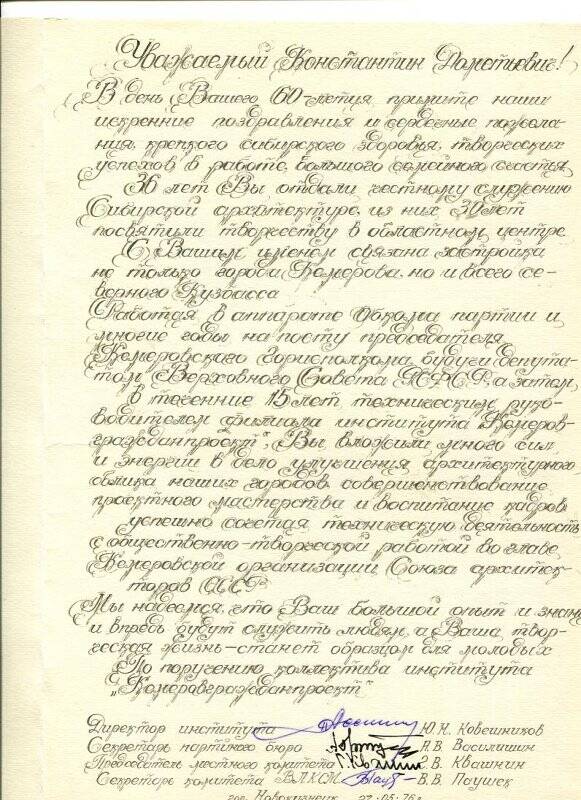 Уважаемый Константин Дометьевич!
В день Вашего 60-летия примите наши
искренние поздравления и сердечные пожела-
ния, крепкого сибирского здоровья, творческих
успехов в работе, большого семейного счастья.
36 лет Вы отдали честному служению
Сибирской архитектуре, из них 30 лет
посвятили творчеству в областном центре.
С Вашим именем связана застройка
не только города Кемерова, но и всего се-
верного Кузбасса
Работая в аппарате Обкома партии и
многие годы на посту председателя
Кемеровского Горисполкома, будучи депута-
том Верховного Совета РСФСР, а затем,
в течение 15 лет, техническим руко-
водителем филиала института "Кемеров-
гражданпроект", Вы вложили много сил
и энергии в дело улучшения архитектурного
облика наших городов, совершенствование
проектного мастерства и воспитание кадров
успешно сочетая техническую деятельность
с общественно-творческой работой во главе
Кемеровской организации Союза архитек-
торов СССР
Мы надеемся, что Ваш большой опыт и знания
и впредь будут служить людям, а Ваша твор-
ческая жизнь-станет образцом для молодых
По поручению коллектива института
„Кемеровгражданпроект"
Директор института Ю.Н. Ковешников
Секретарь партийного бюро А.В. Василишин
Председатель местного комитета Э.В. Квашнин
Секретарь комитета ВЛКСМ В.В. Паушек
гор. Новокузнецк 27.05.76г.